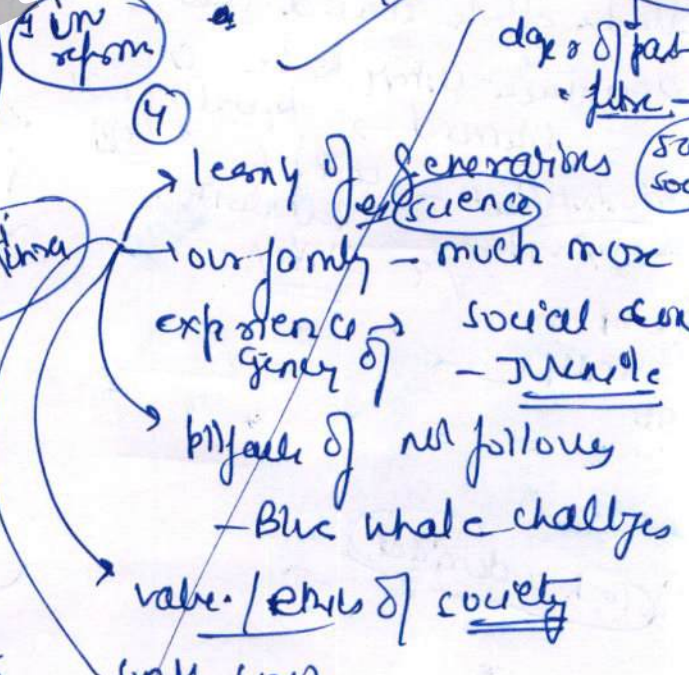 in
reform
days of past
future -
4
learny of generations
science
our family - much more
experience → social
of - Juvenile
pitfalls of not following
- Blue whale challenges
value / ethics of society